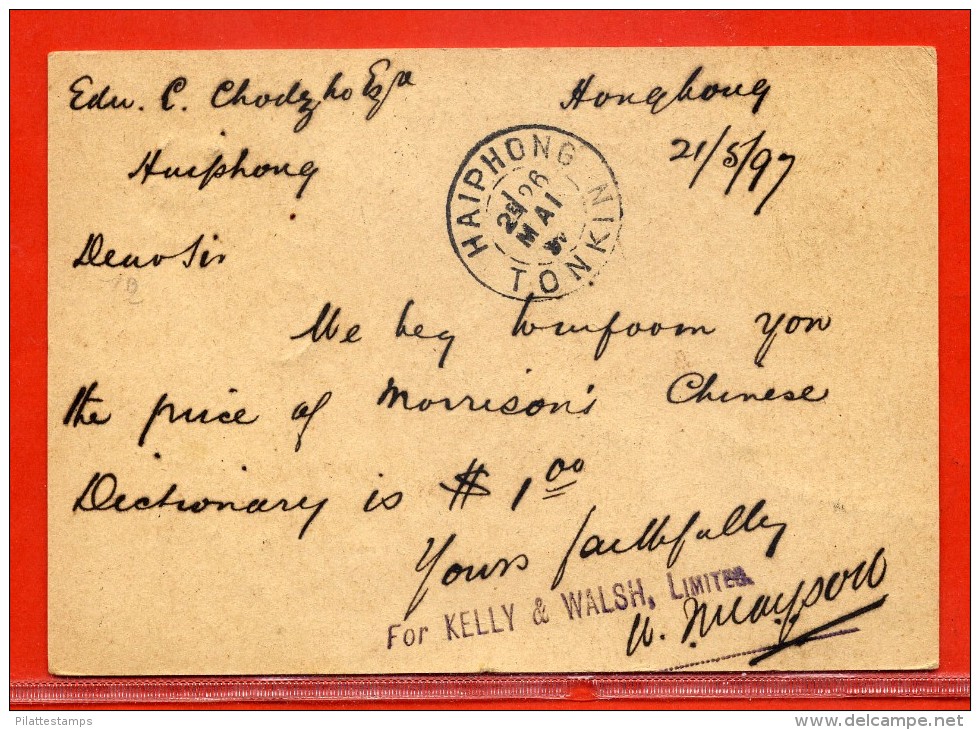 Edw. C. Chodzko Esqr
Hongkong
Haiphong
21/5/97
HAIPHONG TONKIN
26
MAI
Dear Sir
We beg to inform you
the price of Morrison's Chinese
Dictionary is $ 1 00
Yours faithfully
For KELLY & WALSH, LIMITED.
Pilattestamps
www.delcampe.net